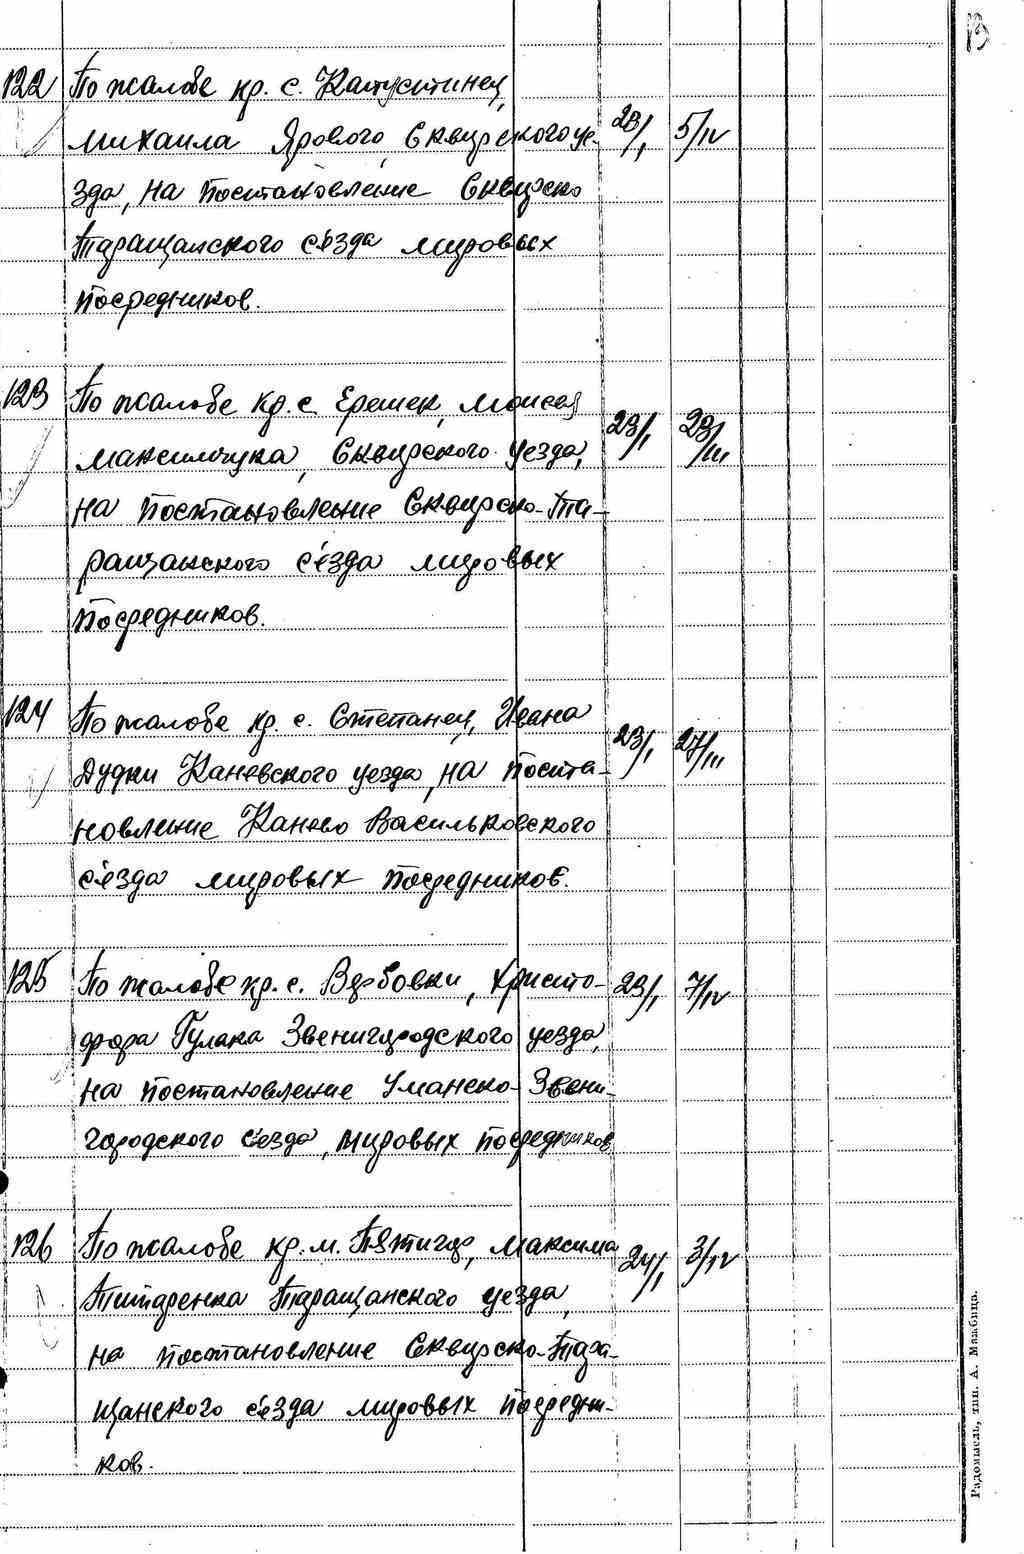 13
122 По жалобе кр. с. Капустинец,
Михаила Ярового, Сквирского уе- 23/I 5/IV
зда, на постановление Сквирско
Таращанского с'езда мировых
посредников.
123 По жалобе кр. с. Ерешек, Моисея
Максимчука, Сквирского уезда, 23/I 29/III
на постановление Сквирско-Та-
ращанского с'езда мировых
посредников.
124 По жалобе кр. с. Степанец, Ивана
Дудки Каневского уезда, на поста- 23/I 27/III
новление Канево Васильковского
с'езда мировых посредников.
125 По жалобе кр. с. Вербовки, Христо- 23/I 7/IV
фора Гулака Звенигородского уезда,
на постановление Уманско-Звени-
городского с'езда, мировых посредников
126 По жалобе кр. м. Пятигор, Максима 24/I 3/IV
Титаренка Таращанского уезда,
на постановление Сквирско-Тара-
щанского с'езда мировых посредни-
ков.
Радомысль, тип. А. Мажбица.